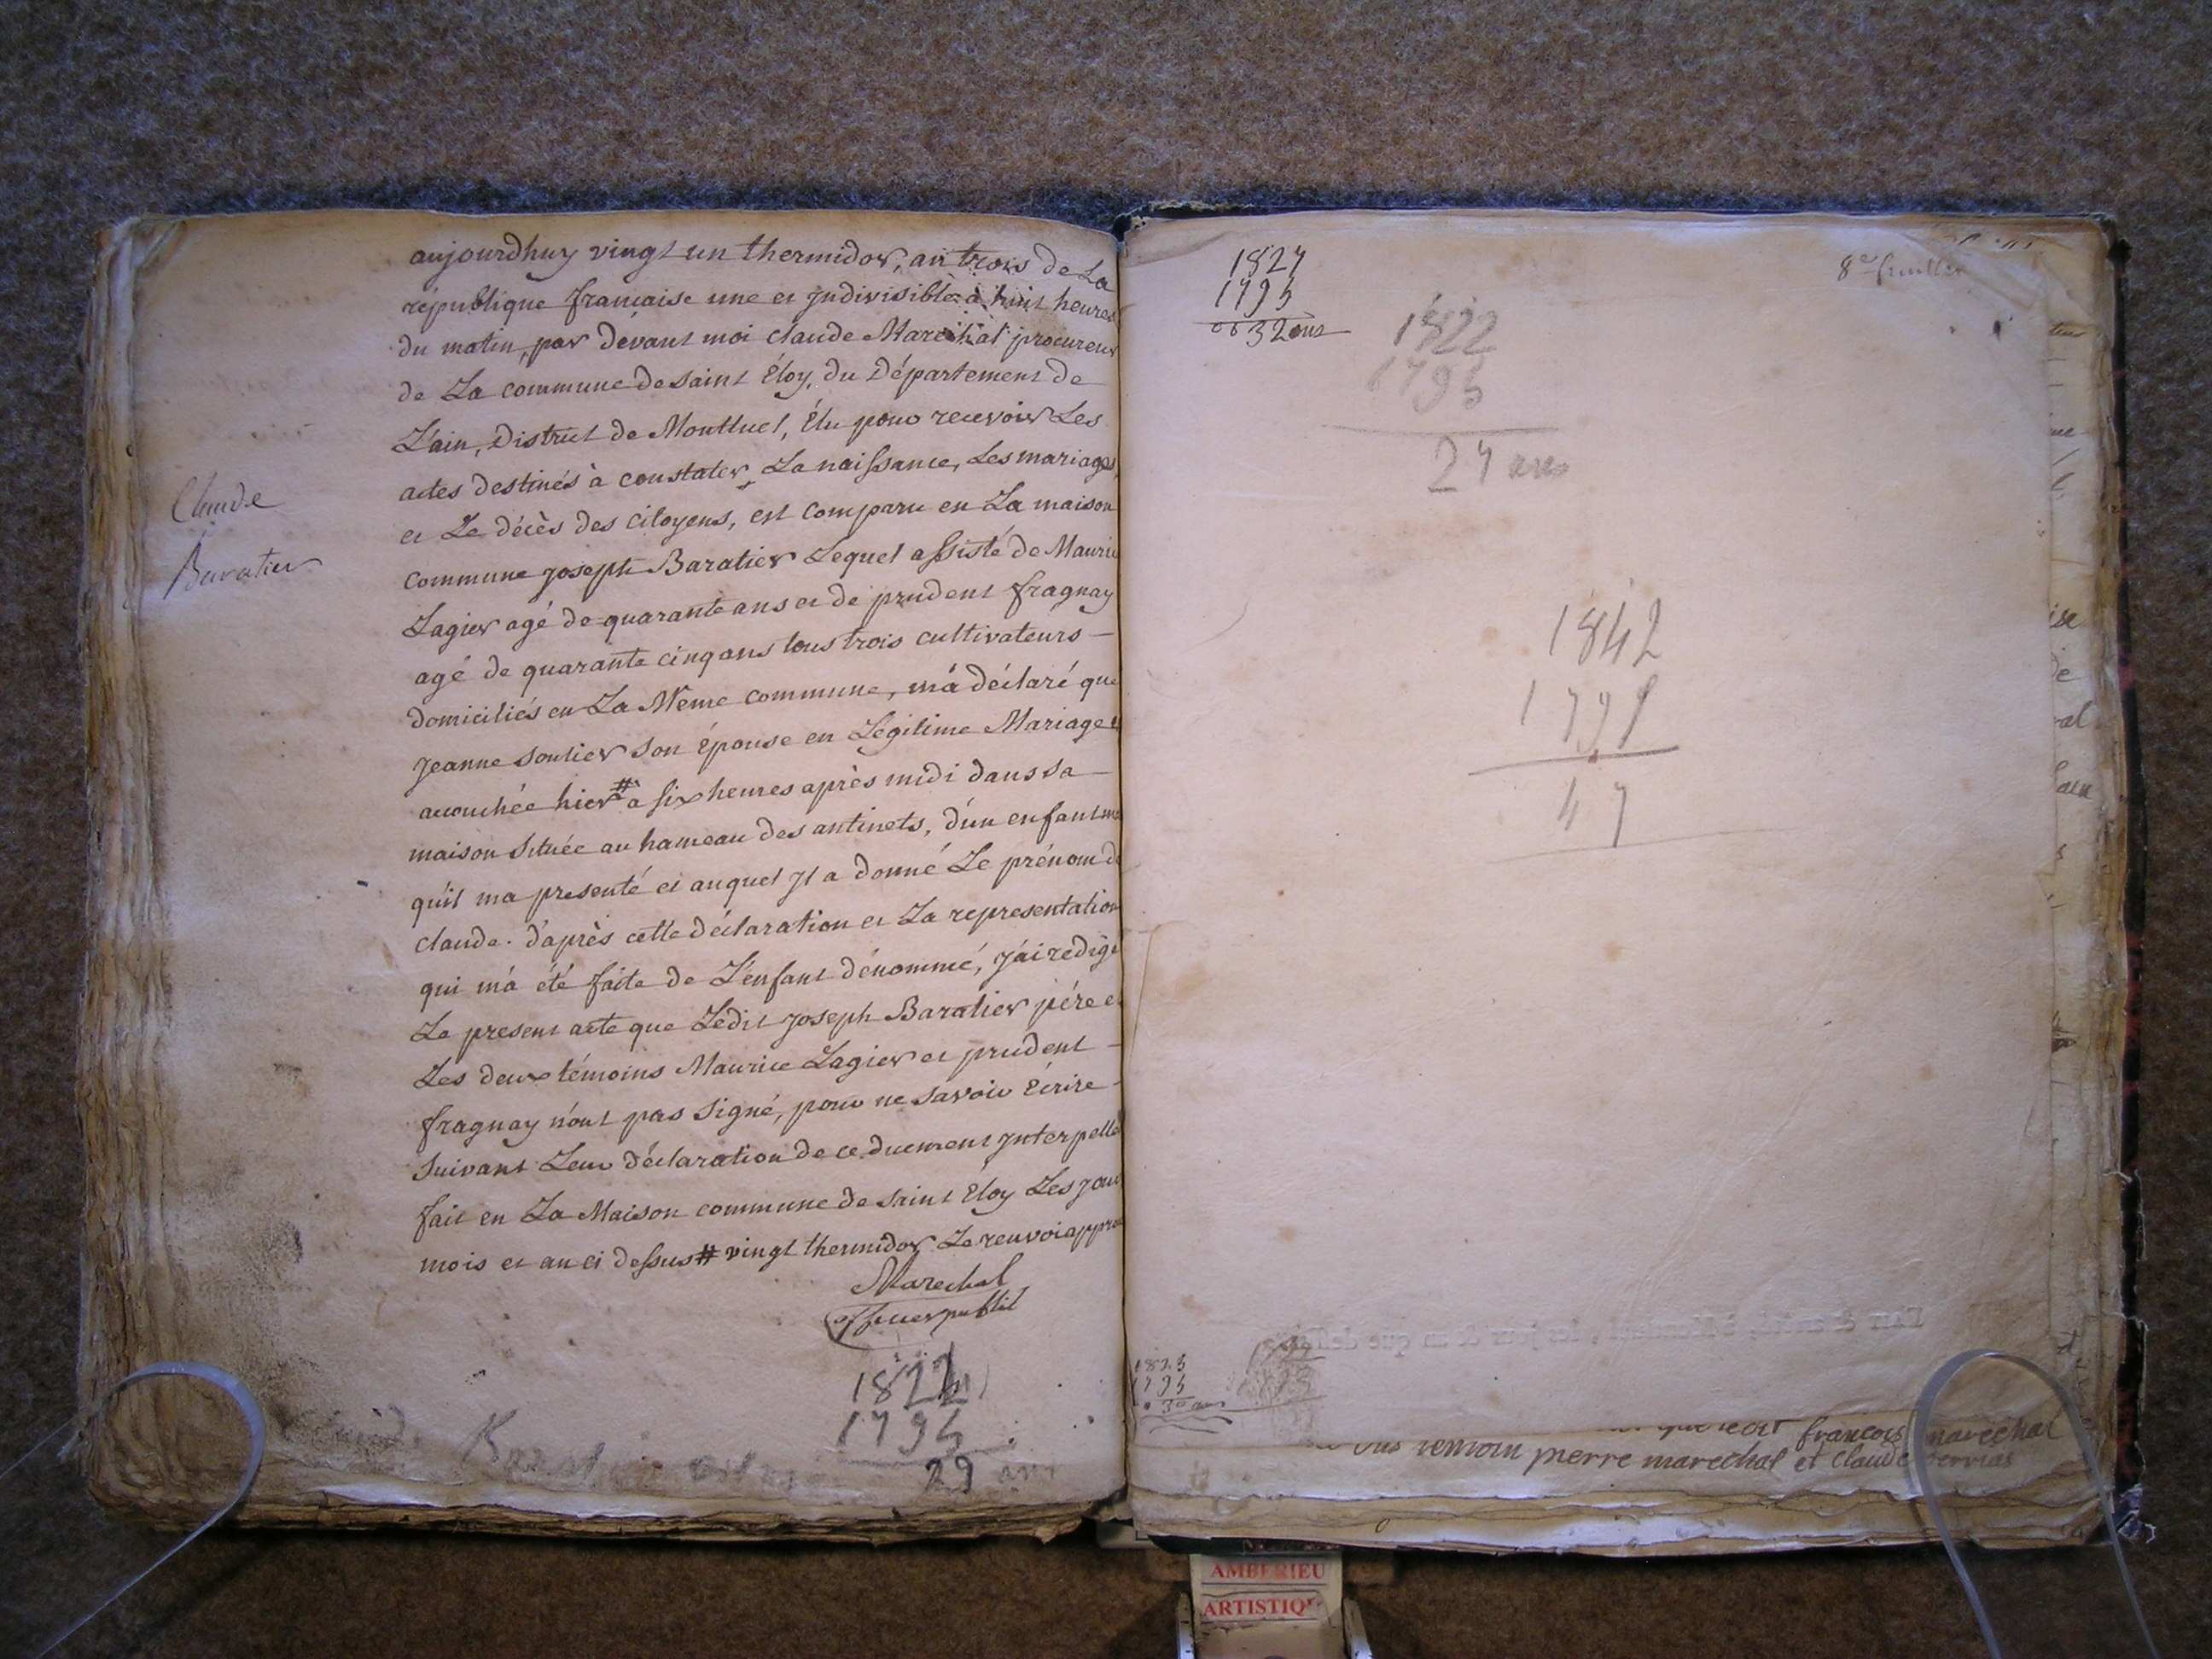 aujourdhuy vingt un thermidor, an trois de La
république francaise une et Jndivisible à huit heures
du matin, par devant moi claude Marechal procureur
de La commune de saint Éloy, du Département de
L'ain, District de Montluel, Élu pour recevoir Les
actes destinés à constater La naissance, Les mariages,
et Le décès des citoyens, est comparu en La maison
commune joseph Baratier Lequel assisté de Maurice
Lagier agé de quarante ans et de prudent fragnay
agé de quarante cinq ans tous trois cultivateurs —
domiciliés en La Même commune, m'a déclaré que
Claude
Baratier
jeanne soulier son épouse en Légitime Mariage
accouchée hier # a six heures après midi dans sa —
maison située au hameau des antinets, d'un enfant
qu'il ma presenté et auquel Jl a donné Le prénom de
claude. d'après cette déclaration et La representation
qui m'a été faite de L'enfant dénommé, J'ai redigé
Le present acte que Ledit joseph Baratier père et
Les deux témoins Maurice Lagier et prudent —
fragnay n'ont pas signé, pour ne savoir Écrire —
suivant Leur déclaration de ce duement Jnterpellé
fait en La Maison commune de saint Eloy Les jour
mois et an ci dessus # vingt thermidor Le renvoi
Marechal
officier public
1795
29 ans
1827
1795
32 ans
1822
1795
27 ans
1842
47
1825
1795
30 ans
françois marechal
temoin pierre marechal et claude
AMBERIEU
ARTISTIQ